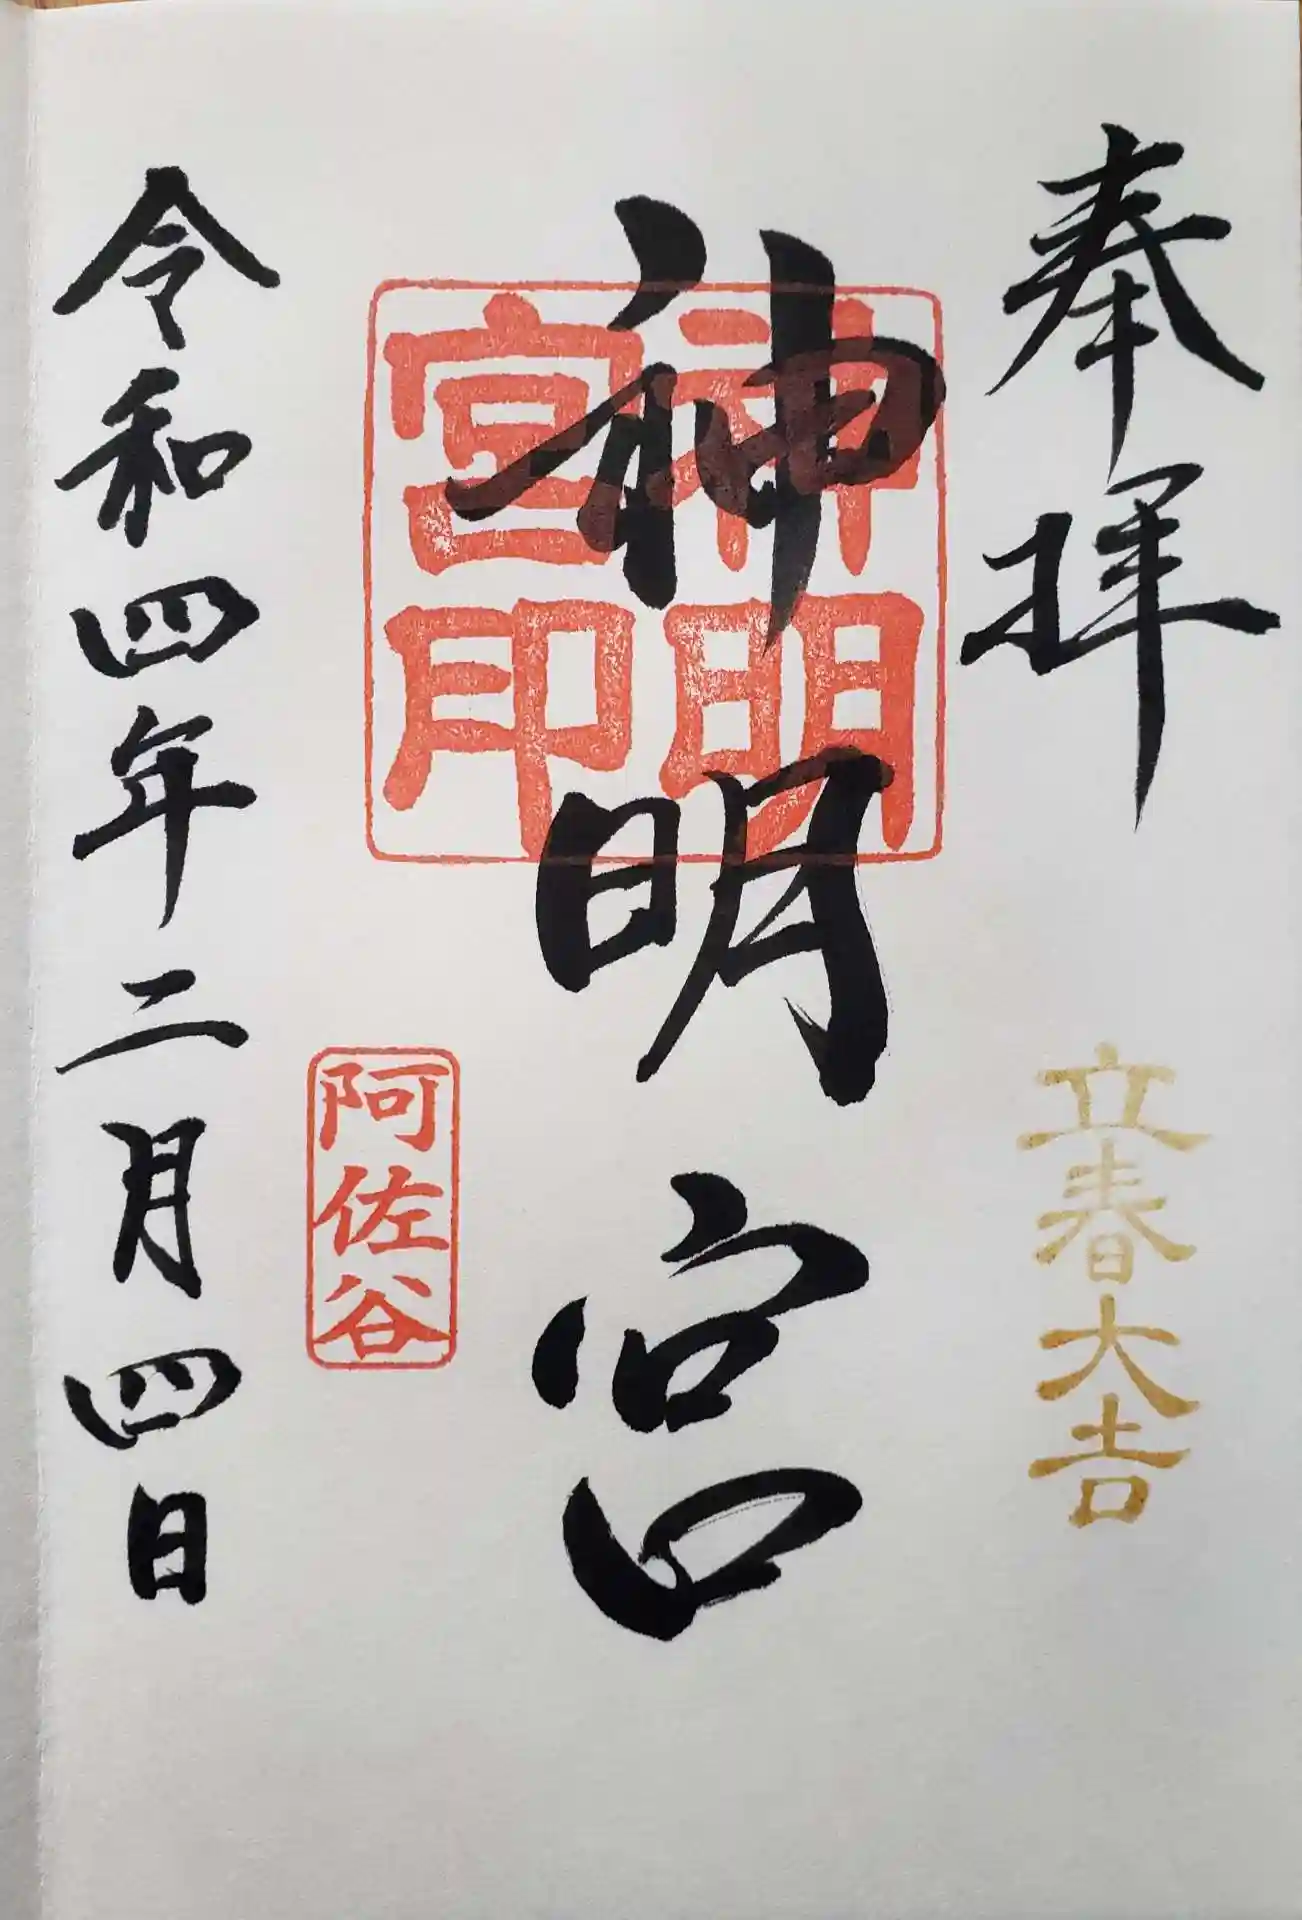 奉拝
立春大吉
神明宮
神明
宮印
阿佐谷
令和四年二月四日